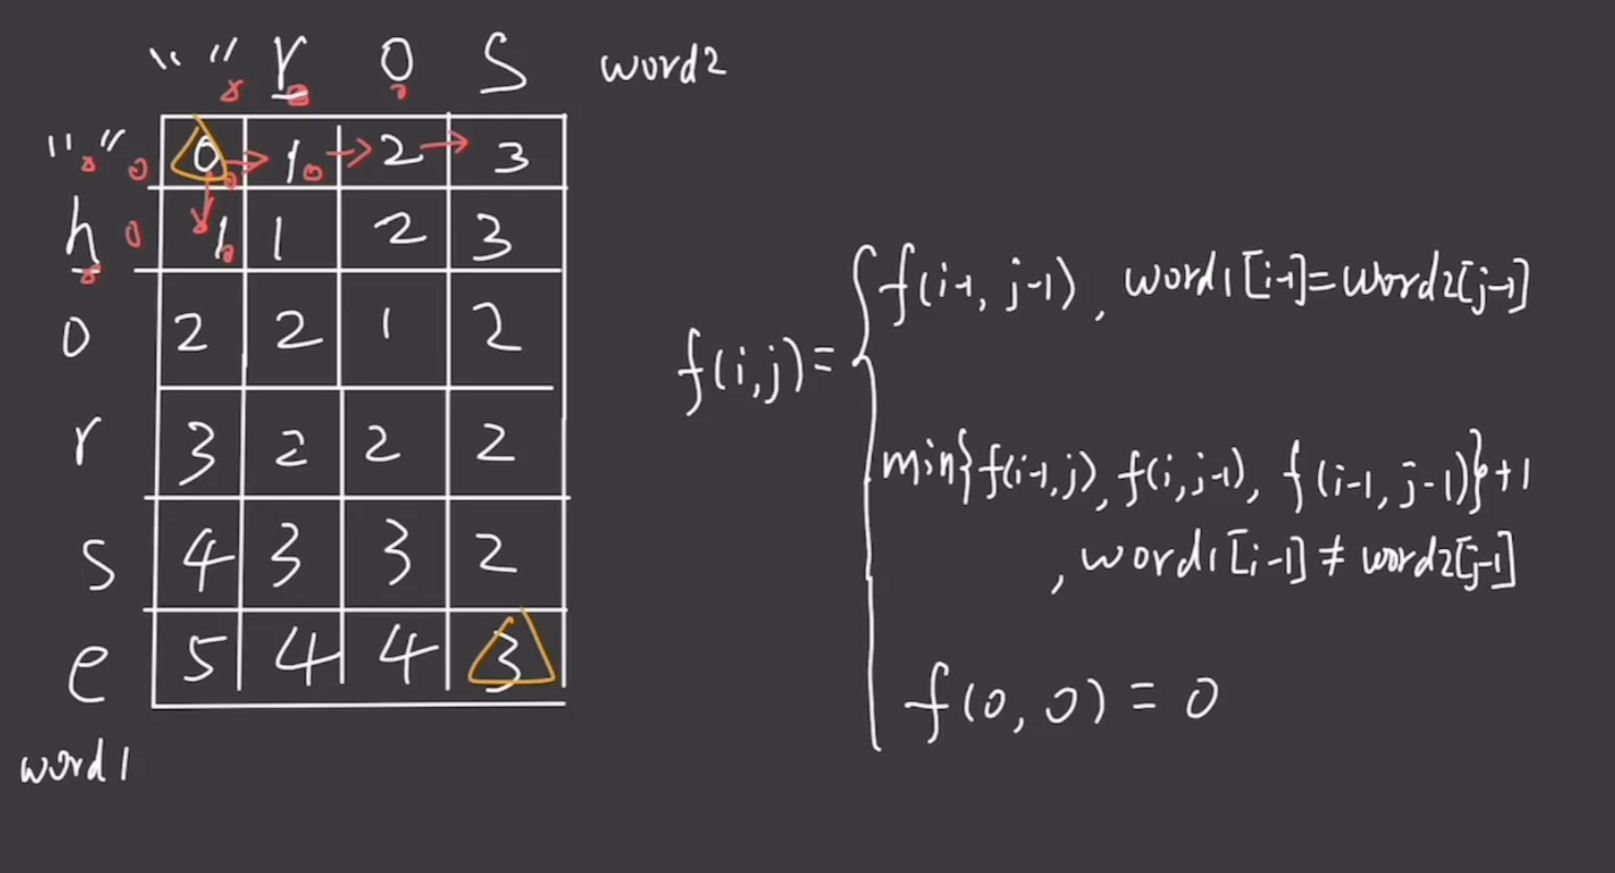 “ ” r o s word2
“ ” 0 1 2 3
h 1 1 2 3
o 2 2 1 2
r 3 2 2 2
s 4 3 3 2
e 5 4 4 3
word1
f(i,j)=
f(i-1, j-1), word1[i-1]=word2[j-1]
min{f(i-1,j), f(i,j-1), f(i-1, j-1)}+1
, word1[i-1]≠word2[j-1]
f(0,0)=0